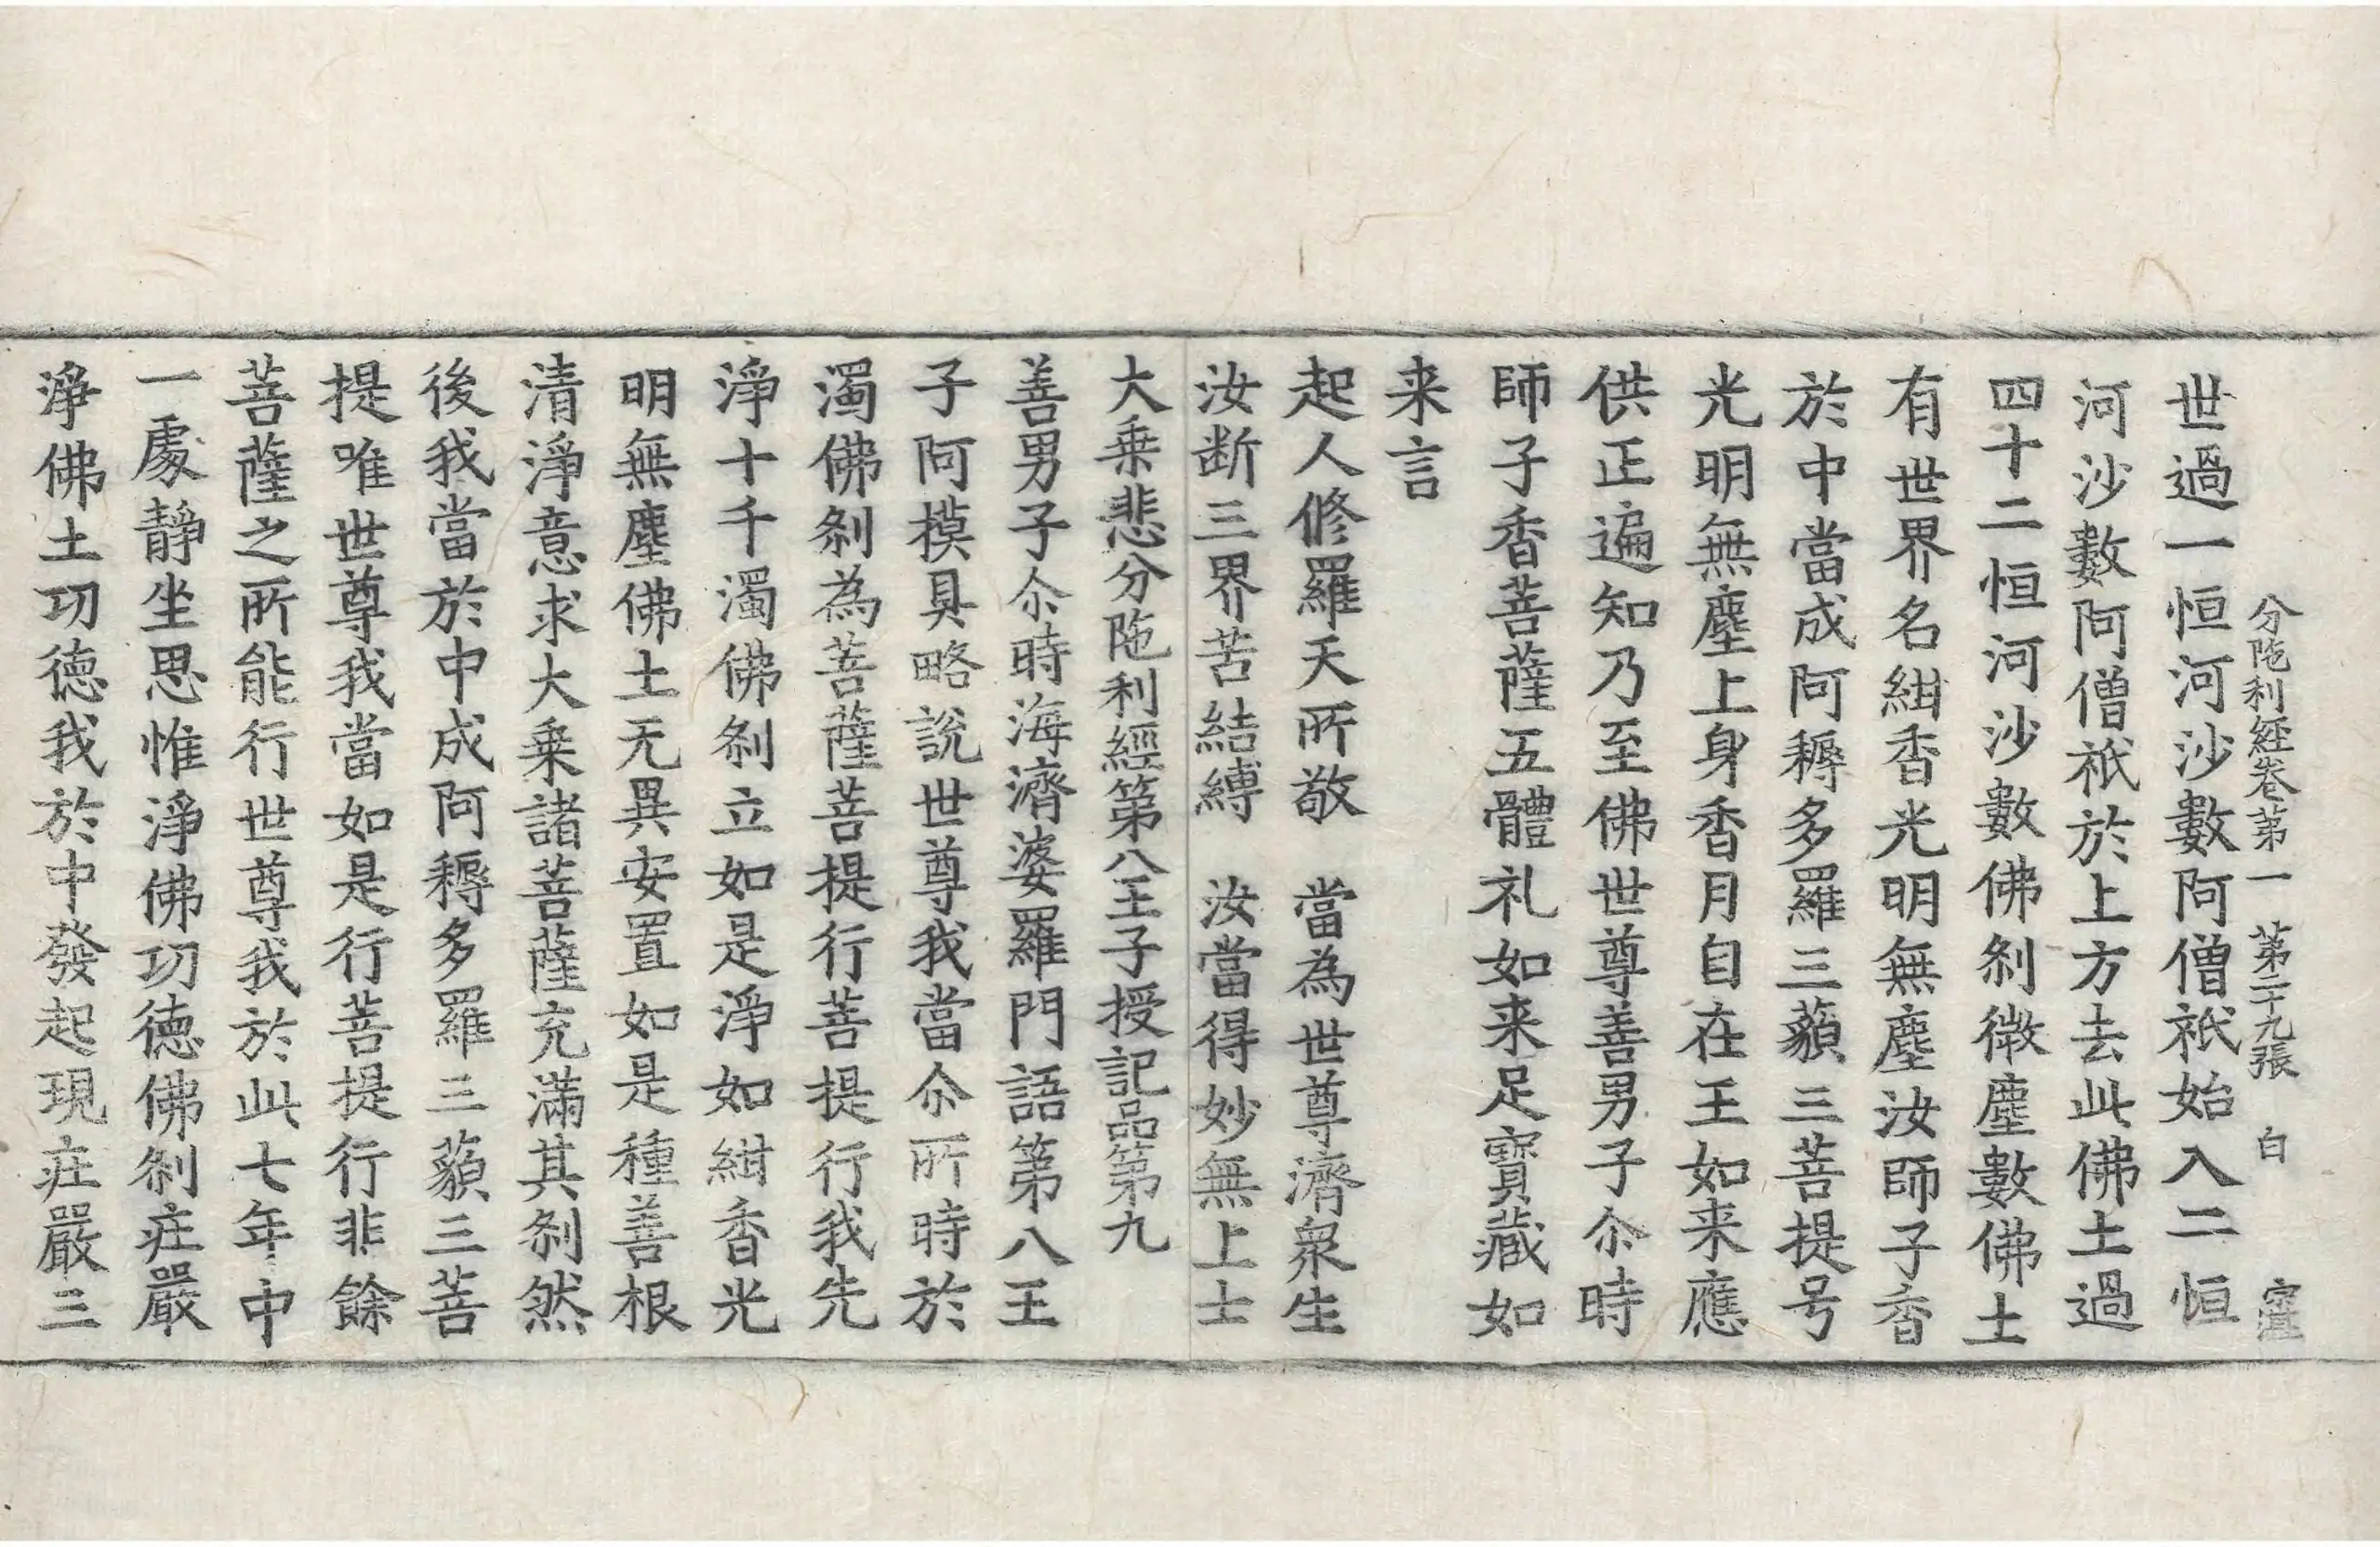 分陁利經卷第一 第二十九張 白
世過一恒河沙數阿僧祇始入二恒
河沙數阿僧祇於上方去此佛土過
四十二恒河沙數佛刹微塵數佛土
有世界名紺香光明無塵汝師子香
於中當成阿耨多羅三藐三菩提号
光明無塵上身香月自在王如来應
供正遍知乃至佛世尊善男子尒時
師子香菩薩五體礼如来足寶藏如
来言
起人修羅天所敬 當為世尊濟衆生
汝断三界苦結縛 汝當得妙無上士
大乗悲分陁利經第八王子授記品第九
善男子尒時海濟婆羅門語第八王
子阿摸具略說世尊我當尒所時於
濁佛刹為菩薩菩提行菩提行我先
淨十千濁佛刹立如是淨如紺香光
明無塵佛土无異安置如是種善根
清淨意求大乗諸菩薩充滿其刹然
後我當於中成阿耨多羅三藐三菩
提唯世尊我當如是行菩提行非餘
菩薩之所能行世尊我於此七年中
一處靜坐思惟淨佛功德佛刹莊嚴
淨佛土功德我於中發起現莊嚴三